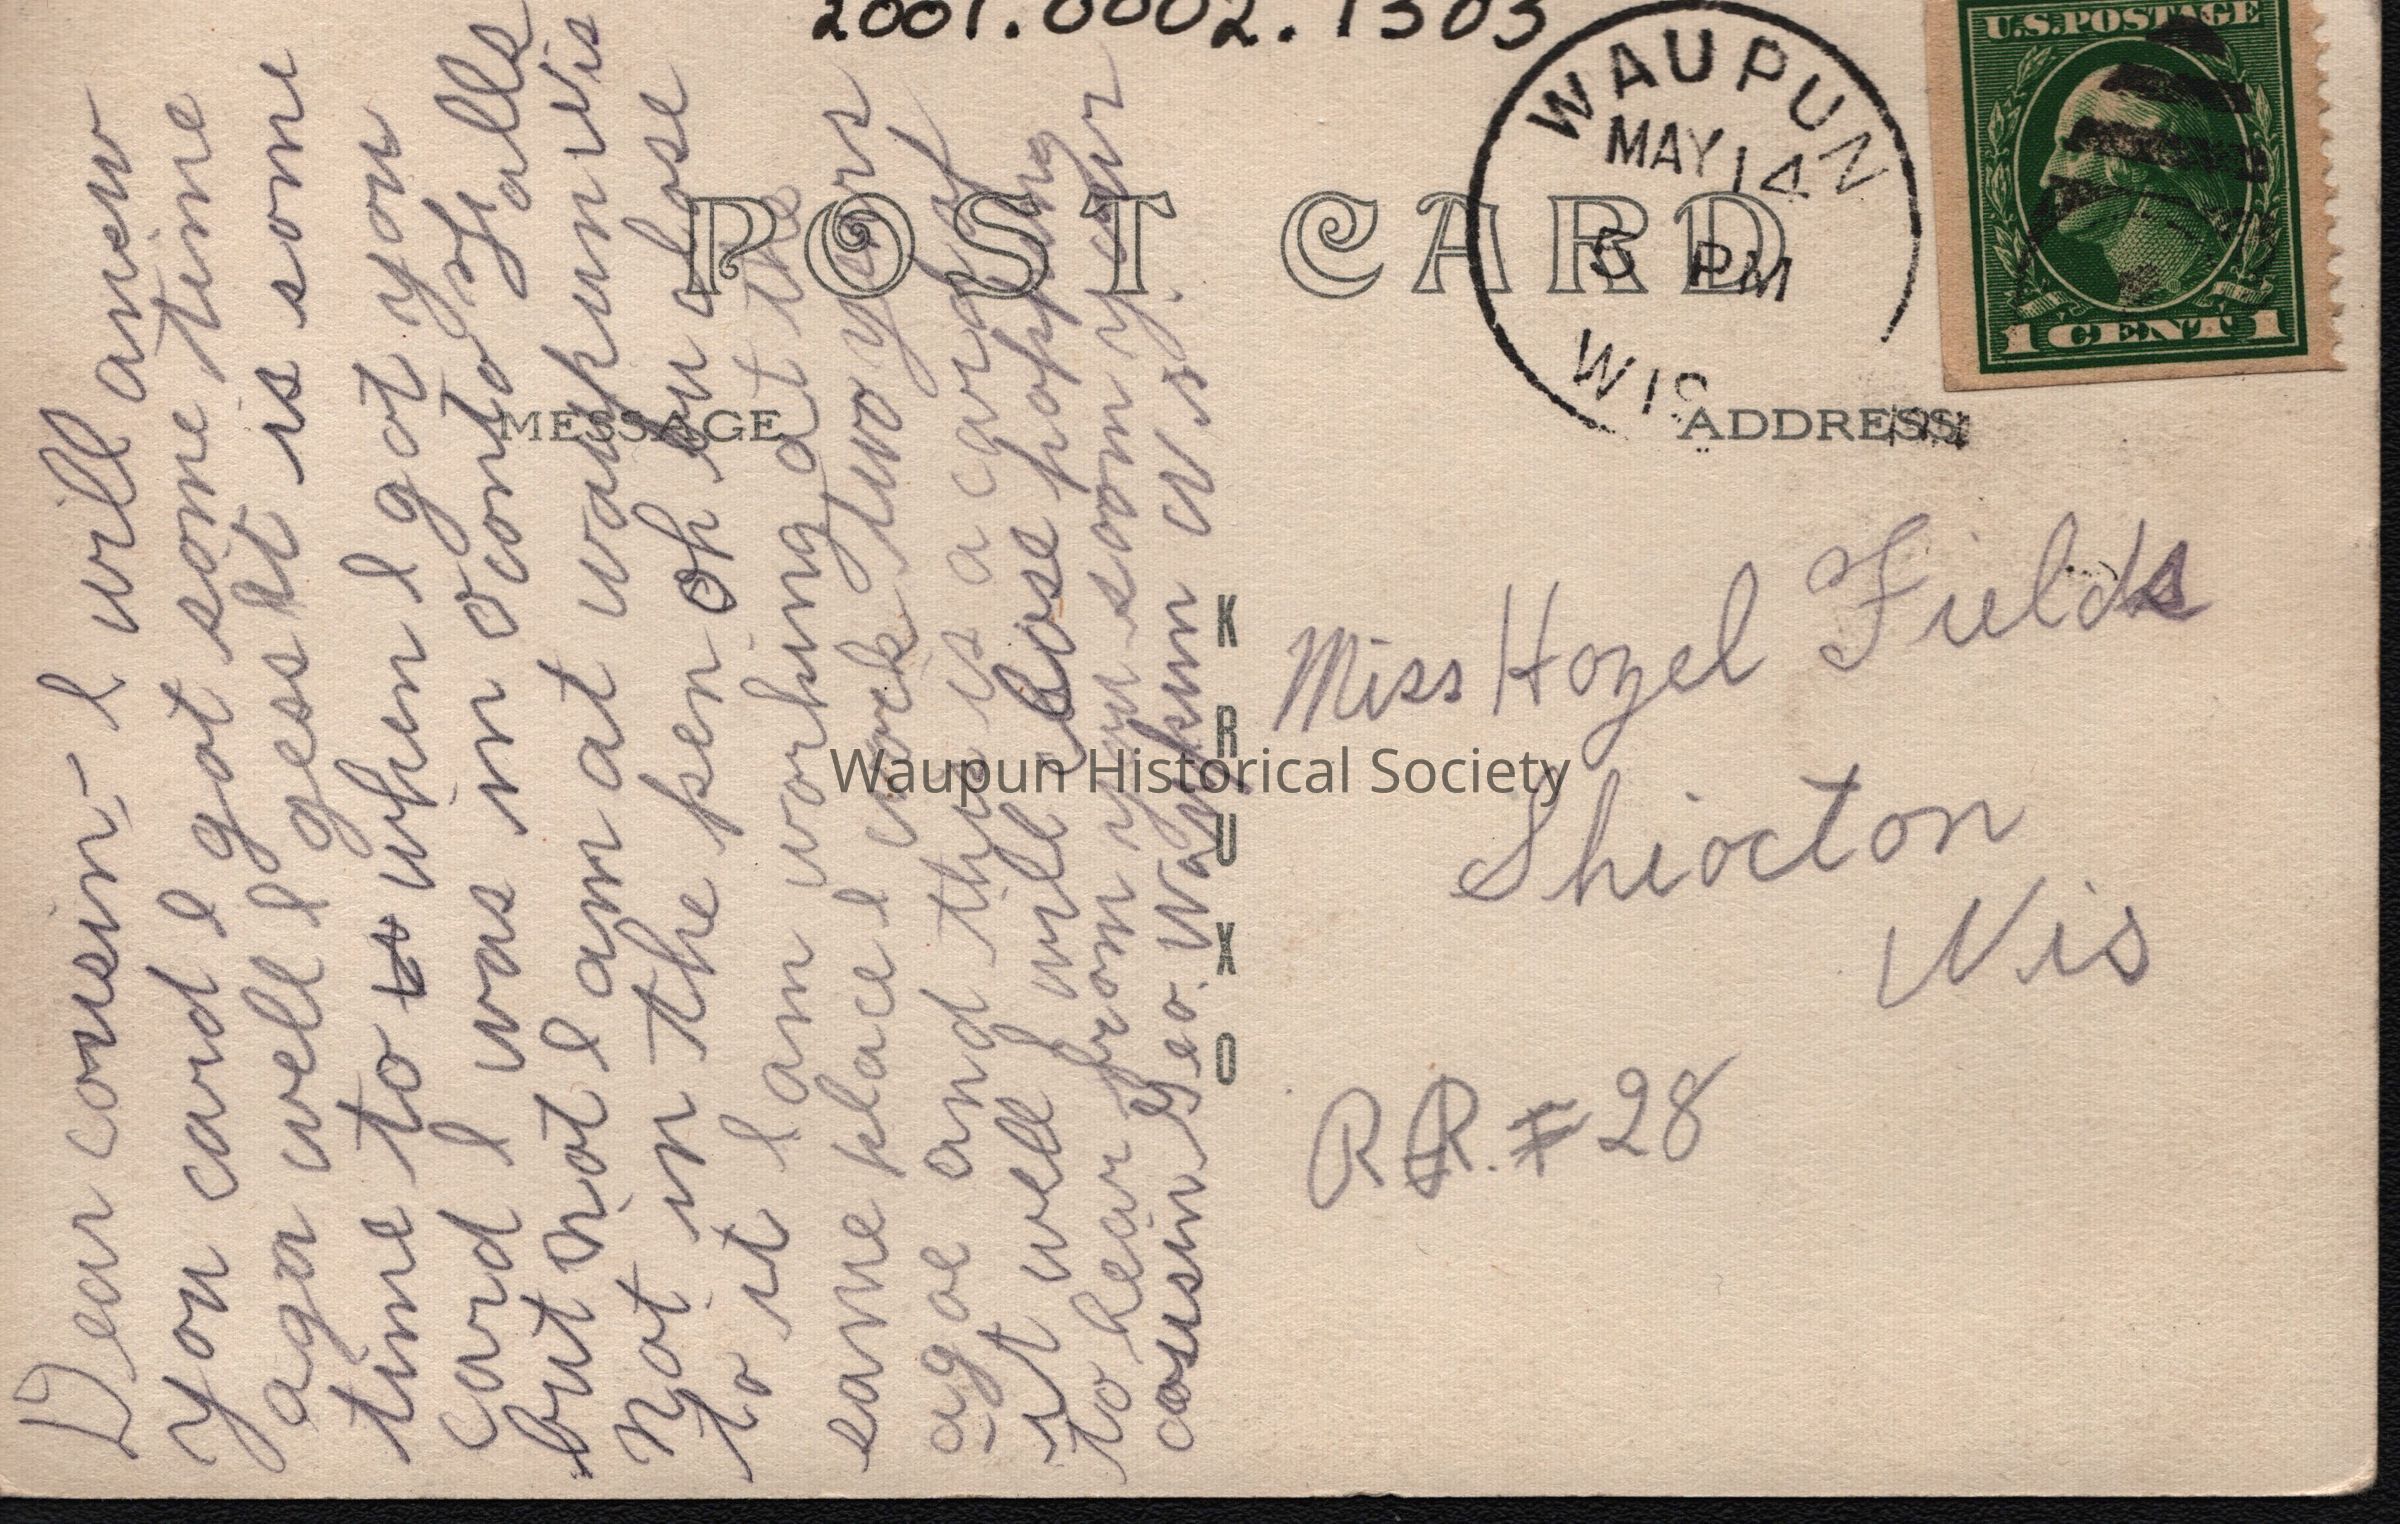 2001.0002.1303
WAUPUN
MAY 14
5 PM
WIS
U.S. POSTAGE
1 CENT 1
POST CARD
MESSAGE
ADDRESS
Dear cousin - I will answ
you card I got some time
ago well I gess it is some
time to when I got you
card I was in oconto Falls
but not I am at waupun Wis
not in the pen oh hu
to it I am working at the
same place I work two years
agoe and this is a card of
it well will close hopping
to hear from you soon your
cousin Geo. Waupun Wis.
KRUXO
Miss Hazel Fields
Shiocton
Wis
RR. # 28
Waupun Historical Society